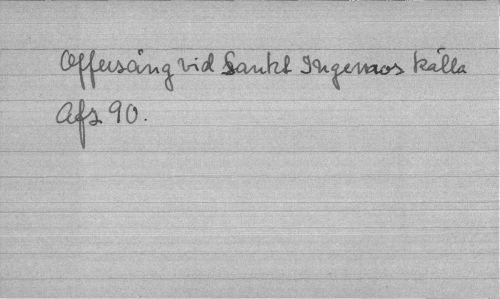 Offersång vid Sankt Ingemos källa
Afz 90.